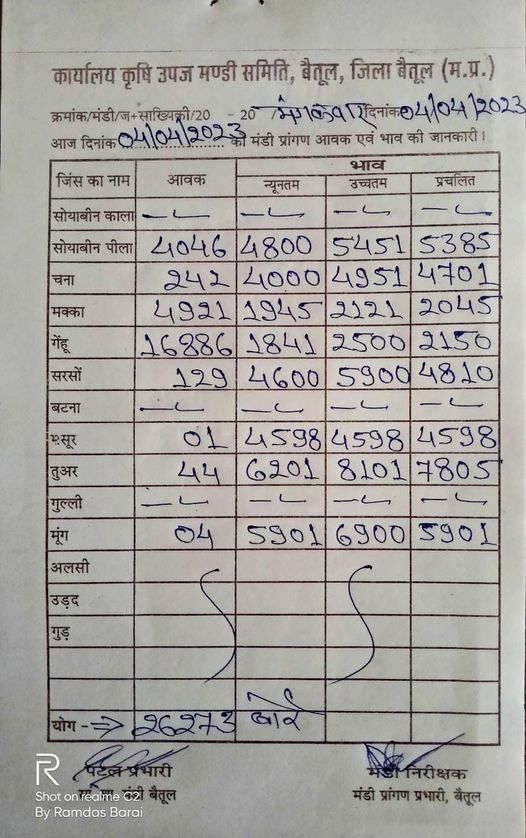 कार्यालय कृषि उपज मण्डी समिति, बैतूल, जिला बैतूल (म.प्र.)
क्रमांक/मंडी/ज+सांख्यिकी/20 - 20 मंगलवार दिनांक 04/04/2023
आज दिनांक 04/04/2023 को मंडी प्रांगण आवक एवं भाव की जानकारी।
जिंस का नाम आवक भाव
न्यूनतम उच्चतम प्रचलित
सोयाबीन काला — — — —
सोयाबीन पीला 4046 4800 5451 5385
चना 242 4000 4951 4701
मक्का 4921 1945 2121 2045
गेंहू 16886 1841 2500 2150
सरसों 129 4600 5900 4810
बटना — — — —
मसूर 01 4598 4598 4598
तुअर 44 6201 8101 7805
गुल्ली — — — —
मूंग 04 5901 6900 5901
अलसी
उड़द
गुड़
योग -⇒ 26273 बोरे
पटल प्रभारी मंडी निरीक्षक
मंडी बैतूल मंडी प्रांगण प्रभारी, बैतूल
R
Shot on realme C2
By Ramdas Barai